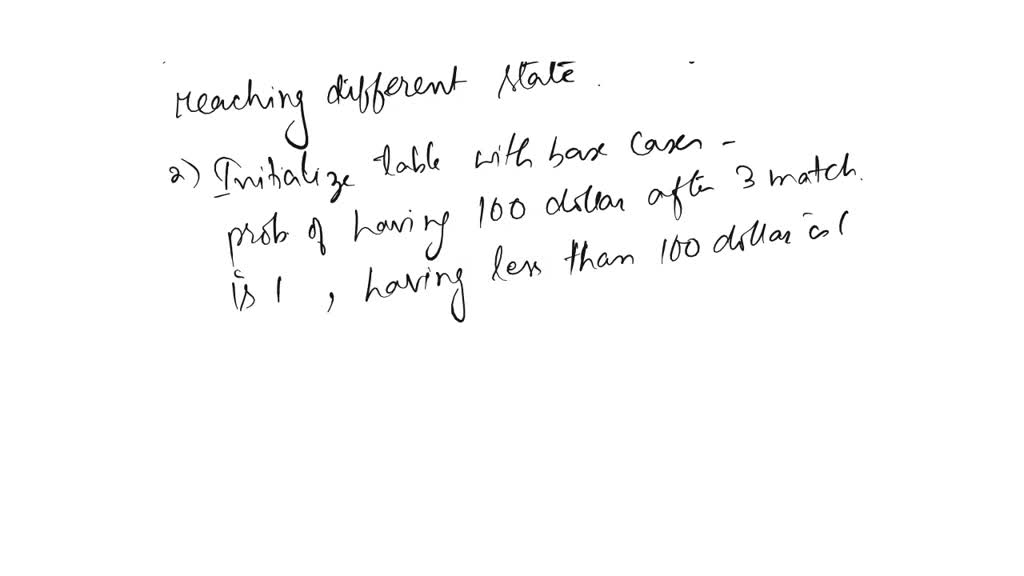 reaching different state.
2) Initialize table with base cases -
prob of having 100 dollar after 3 match.
is 1, having less than 100 dollar is